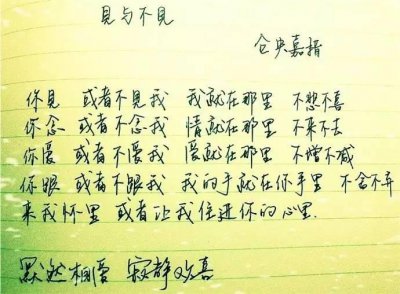 見与不見
仓央嘉措
你見 或者不見我 我就在那里 不愁不喜
你念 或者不念我 情就在那里 不来不去
你愛 或者不愛我 愛就在那里 不增不减
你跟 或者不跟我 我的手就在你手里 不舍不弃
来我怀里 或者让我住进你的心里.
默然相愛 寂静欢喜